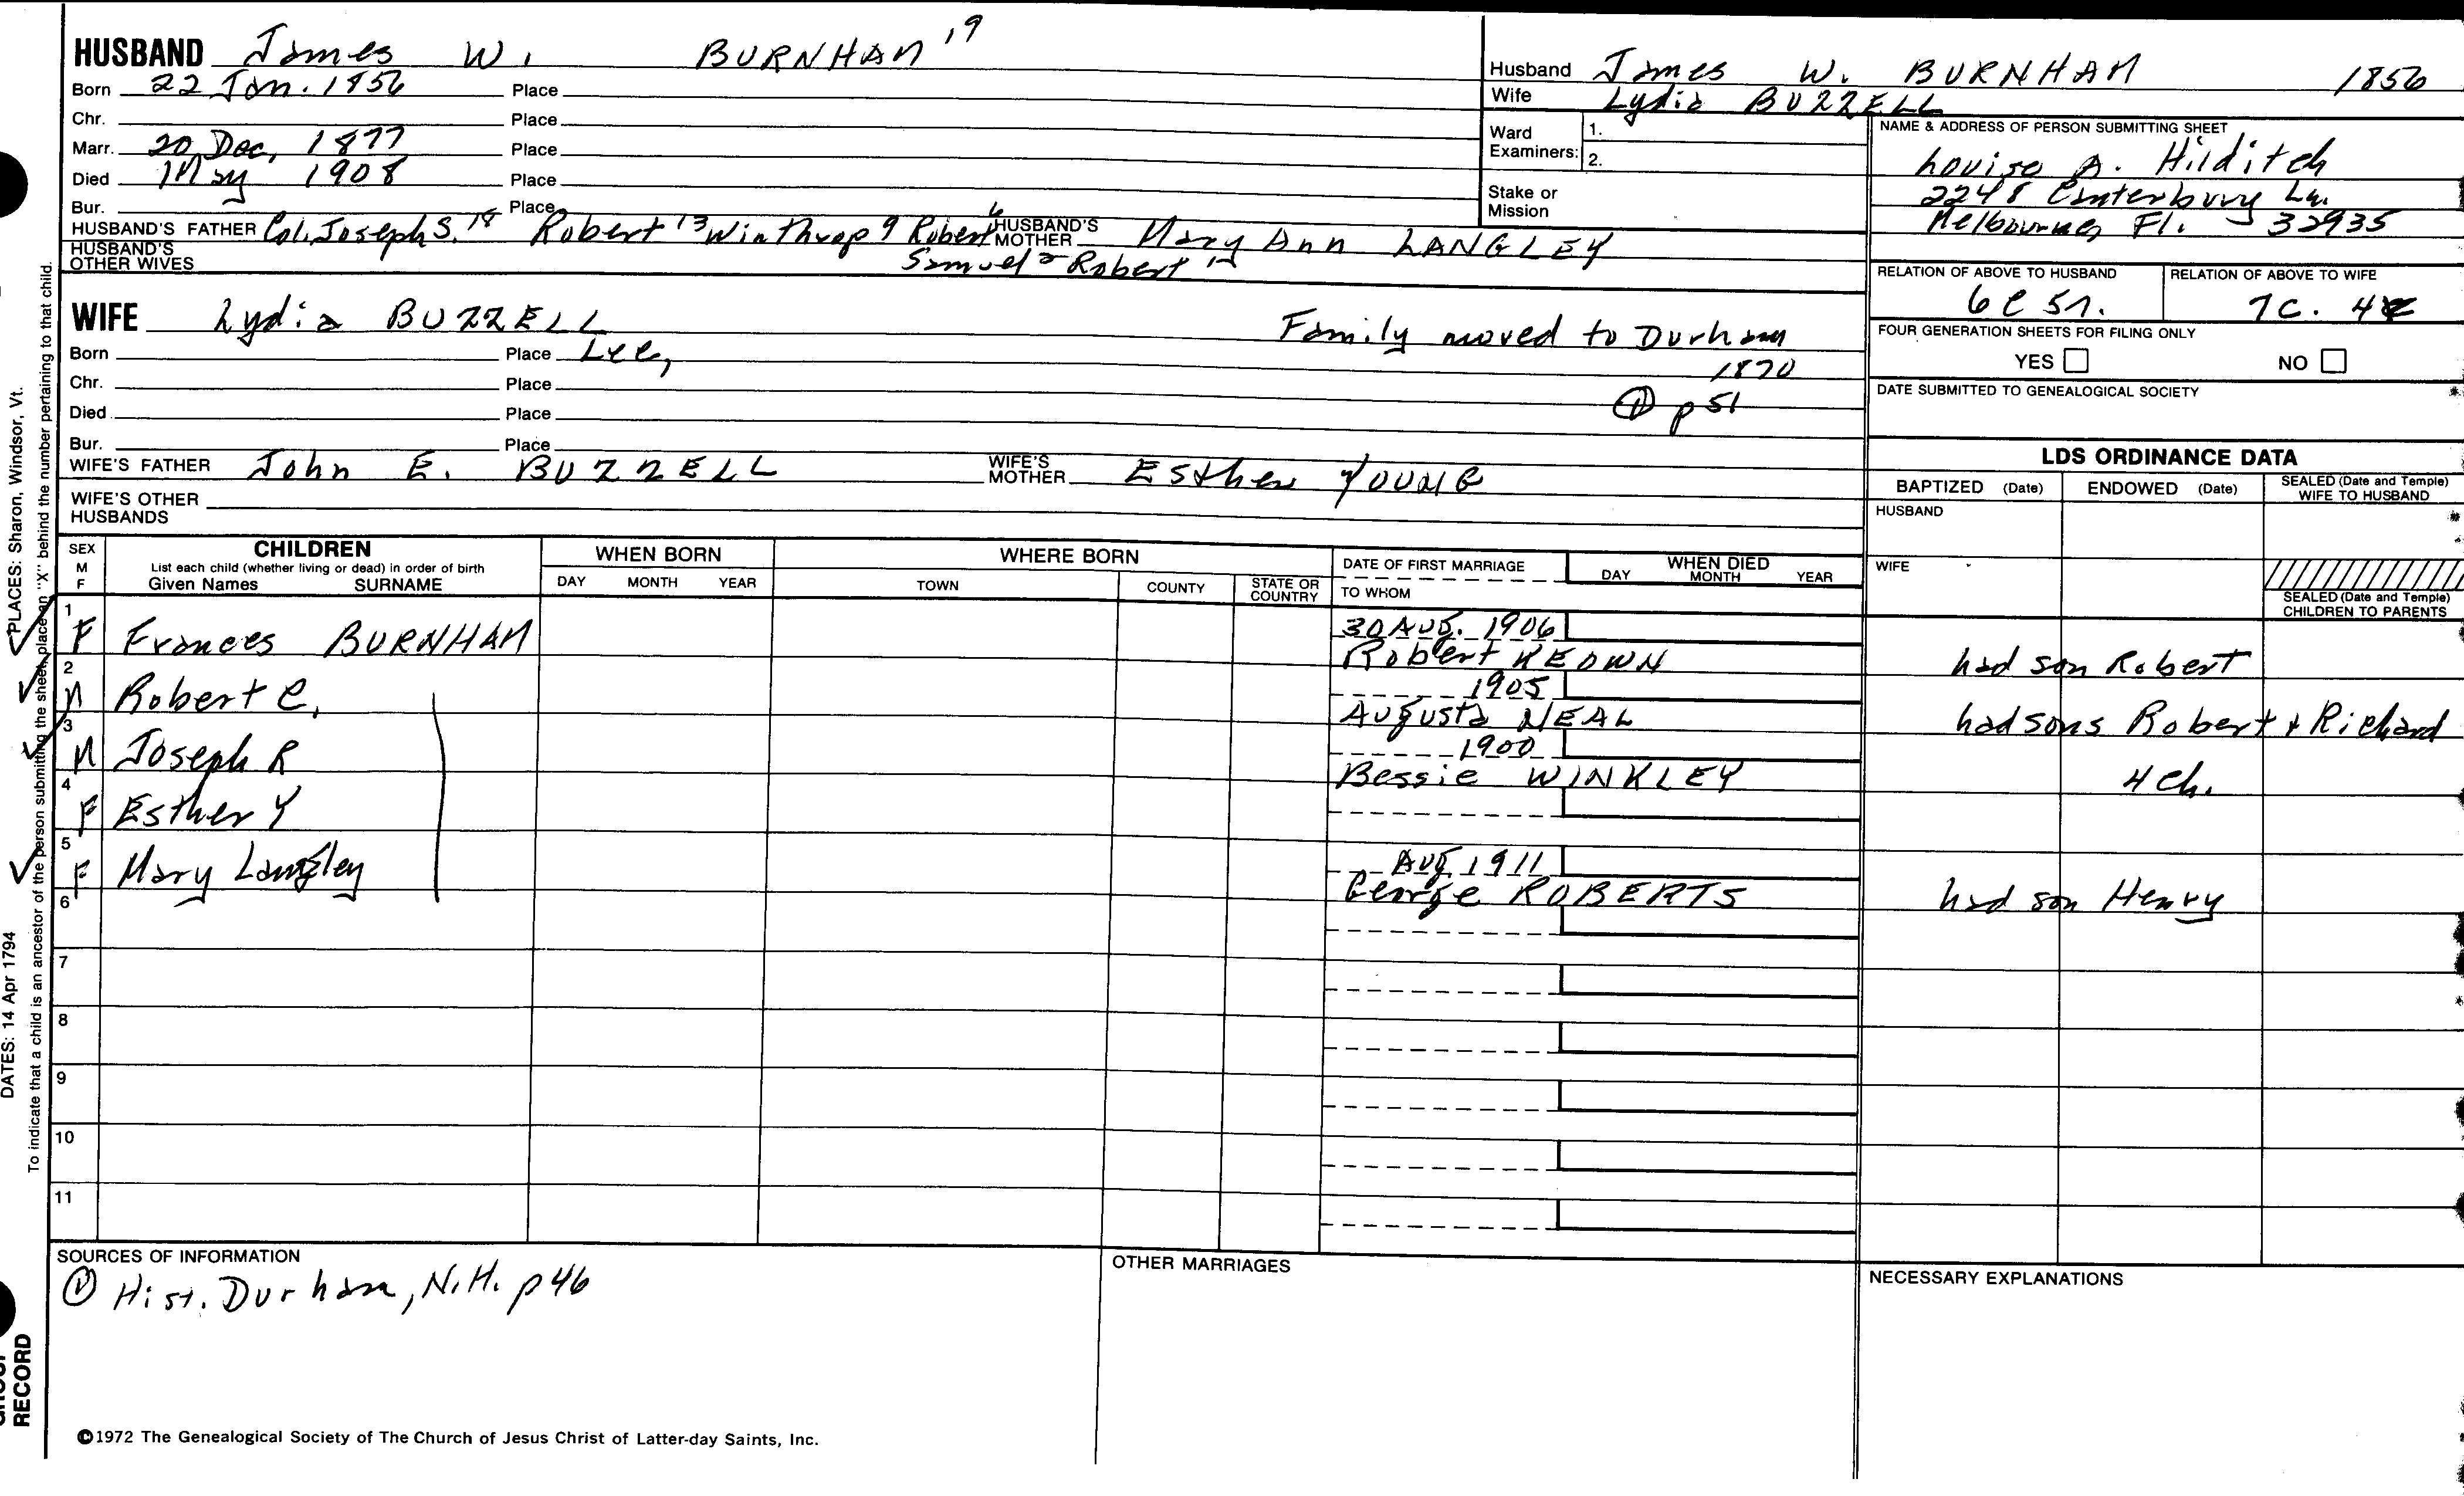 HUSBAND James W. BURNHAM 19
Born 22 Jan. 1856 Place
Chr. Place
Marr. 20 Dec. 1877 Place
Died May 1908 Place
Bur. Place
HUSBAND'S FATHER Col. Joseph S. 18 Robert 13 Winthrop 9 Robert 6 HUSBAND'S MOTHER Mary Ann LANGLEY
HUSBAND'S OTHER WIVES Samuel 2 Robert
Husband James W. BURNHAM 1856
Wife Lydia BUZZELL
Ward Examiners: 1.
2.
Stake or Mission
NAME & ADDRESS OF PERSON SUBMITTING SHEET
Louise A. Hilditch
2248 Canterbury Ln.
Melbourne, Fl. 32935
RELATION OF ABOVE TO HUSBAND RELATION OF ABOVE TO WIFE
6C 5r. 7C. 4
FOUR GENERATION SHEETS FOR FILING ONLY
YES NO
DATE SUBMITTED TO GENEALOGICAL SOCIETY
WIFE Lydia BUZZELL
Born Place Lee,
Chr. Place
Died Place
Bur. Place
Family moved to Durham
1870
① p 51
WIFE'S FATHER John E. BUZZELL WIFE'S MOTHER Esther YOUNG
WIFE'S OTHER HUSBANDS
LDS ORDINANCE DATA
BAPTIZED (Date) ENDOWED (Date) SEALED (Date and Temple) WIFE TO HUSBAND
HUSBAND
WIFE
SEALED (Date and Temple) CHILDREN TO PARENTS
SEX M F
CHILDREN
List each child (whether living or dead) in order of birth
Given Names SURNAME
WHEN BORN
DAY MONTH YEAR
WHERE BORN
TOWN COUNTY STATE OR COUNTRY
DATE OF FIRST MARRIAGE
TO WHOM
WHEN DIED
DAY MONTH YEAR
1 F Frances BURNHAM 30 Aug. 1906
Robert KEOWN had son Robert
2 M Robert C. 1905
Augusta NEAL had sons Robert & Richard
3 M Joseph R 1900
Bessie WINKLEY 4 ch.
4 F Esther Y
5 F Mary Langley Aug. 1911
George ROBERTS had son Henry
6
7
8
9
10
11
SOURCES OF INFORMATION
① Hist. Durham, N.H. p 46
OTHER MARRIAGES
NECESSARY EXPLANATIONS
©1972 The Genealogical Society of The Church of Jesus Christ of Latter-day Saints, Inc.
PLACES: Sharon, Windsor, Vt.
DATES: 14 Apr 1794
To indicate that a child is an ancestor of the person submitting the sheet, place an "X" behind the number pertaining to that child.
RECORD